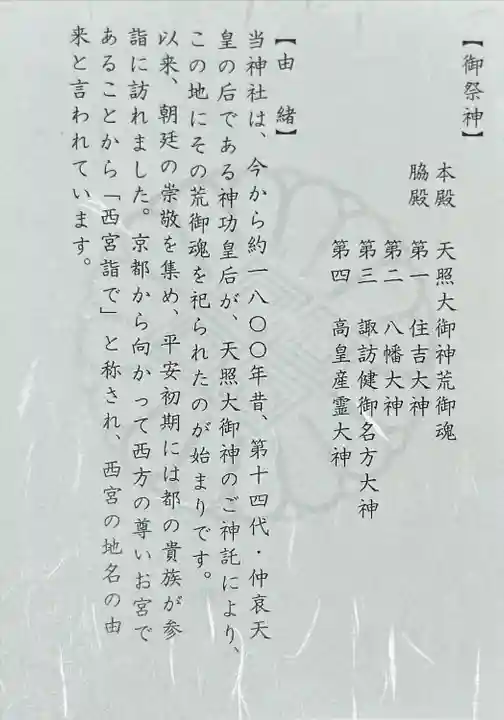 【御祭神】
本殿　天照大御神荒御魂
脇殿　第一　住吉大神
第二　八幡大神
第三　諏訪健御名方大神
第四　高皇産霊大神
【由　緒】
当神社は、今から約一八〇〇年昔、第十四代・仲哀天
皇の后である神功皇后が、天照大御神のご神託により、
この地にその荒御魂を祀られたのが始まりです。
以来、朝廷の崇敬を集め、平安初期には都の貴族が参
詣に訪れました。京都から向かって西方の尊いお宮で
あることから「西宮詣で」と称され、西宮の地名の由
来と言われています。